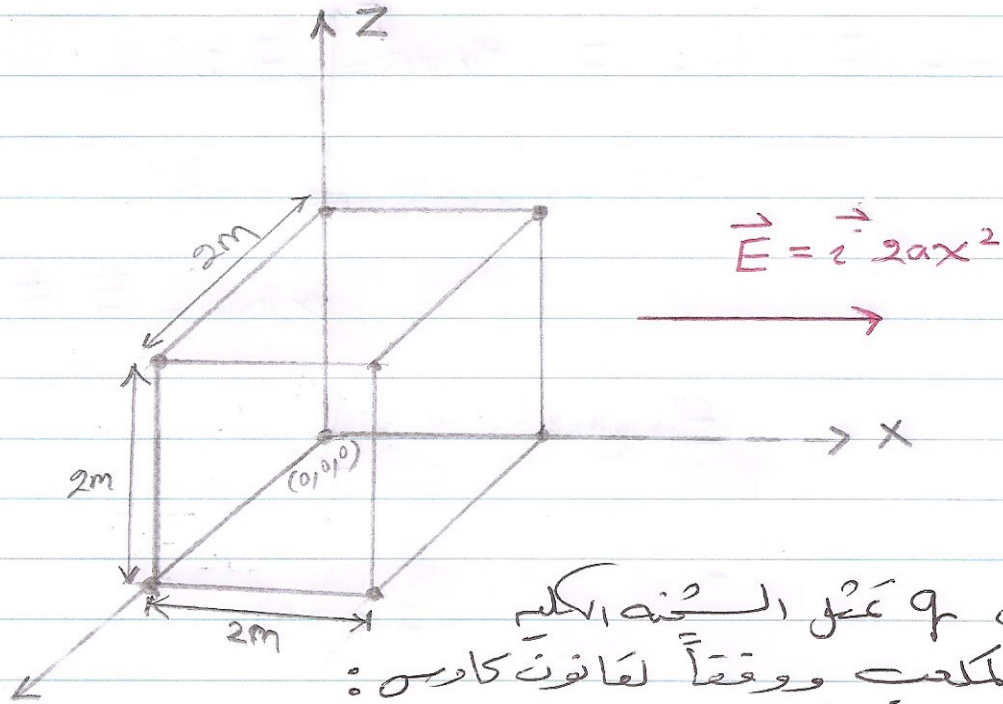 Z
2m
E⃗ = i⃗ 2ax²
X
(0,0,0)
2m
2m
q تمثل الشحنة الكلية
لمكعب ووفقاً لقانون كاوس :